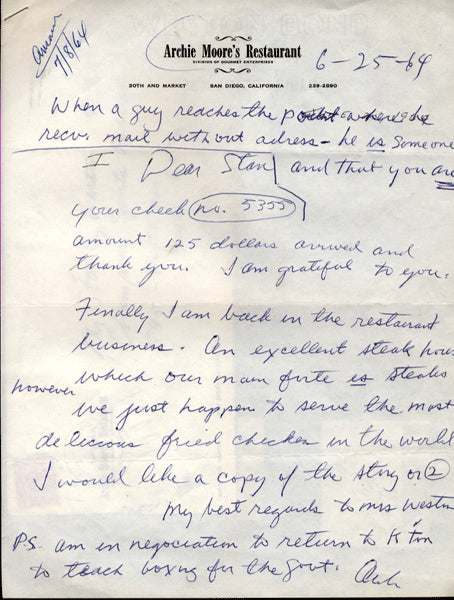 Answd
7/8/64
Archie Moore's Restaurant
DIVISION OF GOURMET ENTERPRISES
30TH AND MARKET SAN DIEGO, CALIFORNIA 239-2890
6-25-64
When a guy reaches the point where he
recv. mail without adress - he is someone
I Dear Stan and that you are
your check no. 5355
amount 125 dollars arrived and
thank you. I am grateful to you.
Finally I am back in the restaurant
business. An excellent steak hous
which our main forte is steaks
however
we just happen to serve the most
delicious fried chicken in the world
I would like a copy of the story or 2
My best regards to Mrs Weston
P.S. am in negociation to return to K Ton
to teach boxing for the Govt. Arch